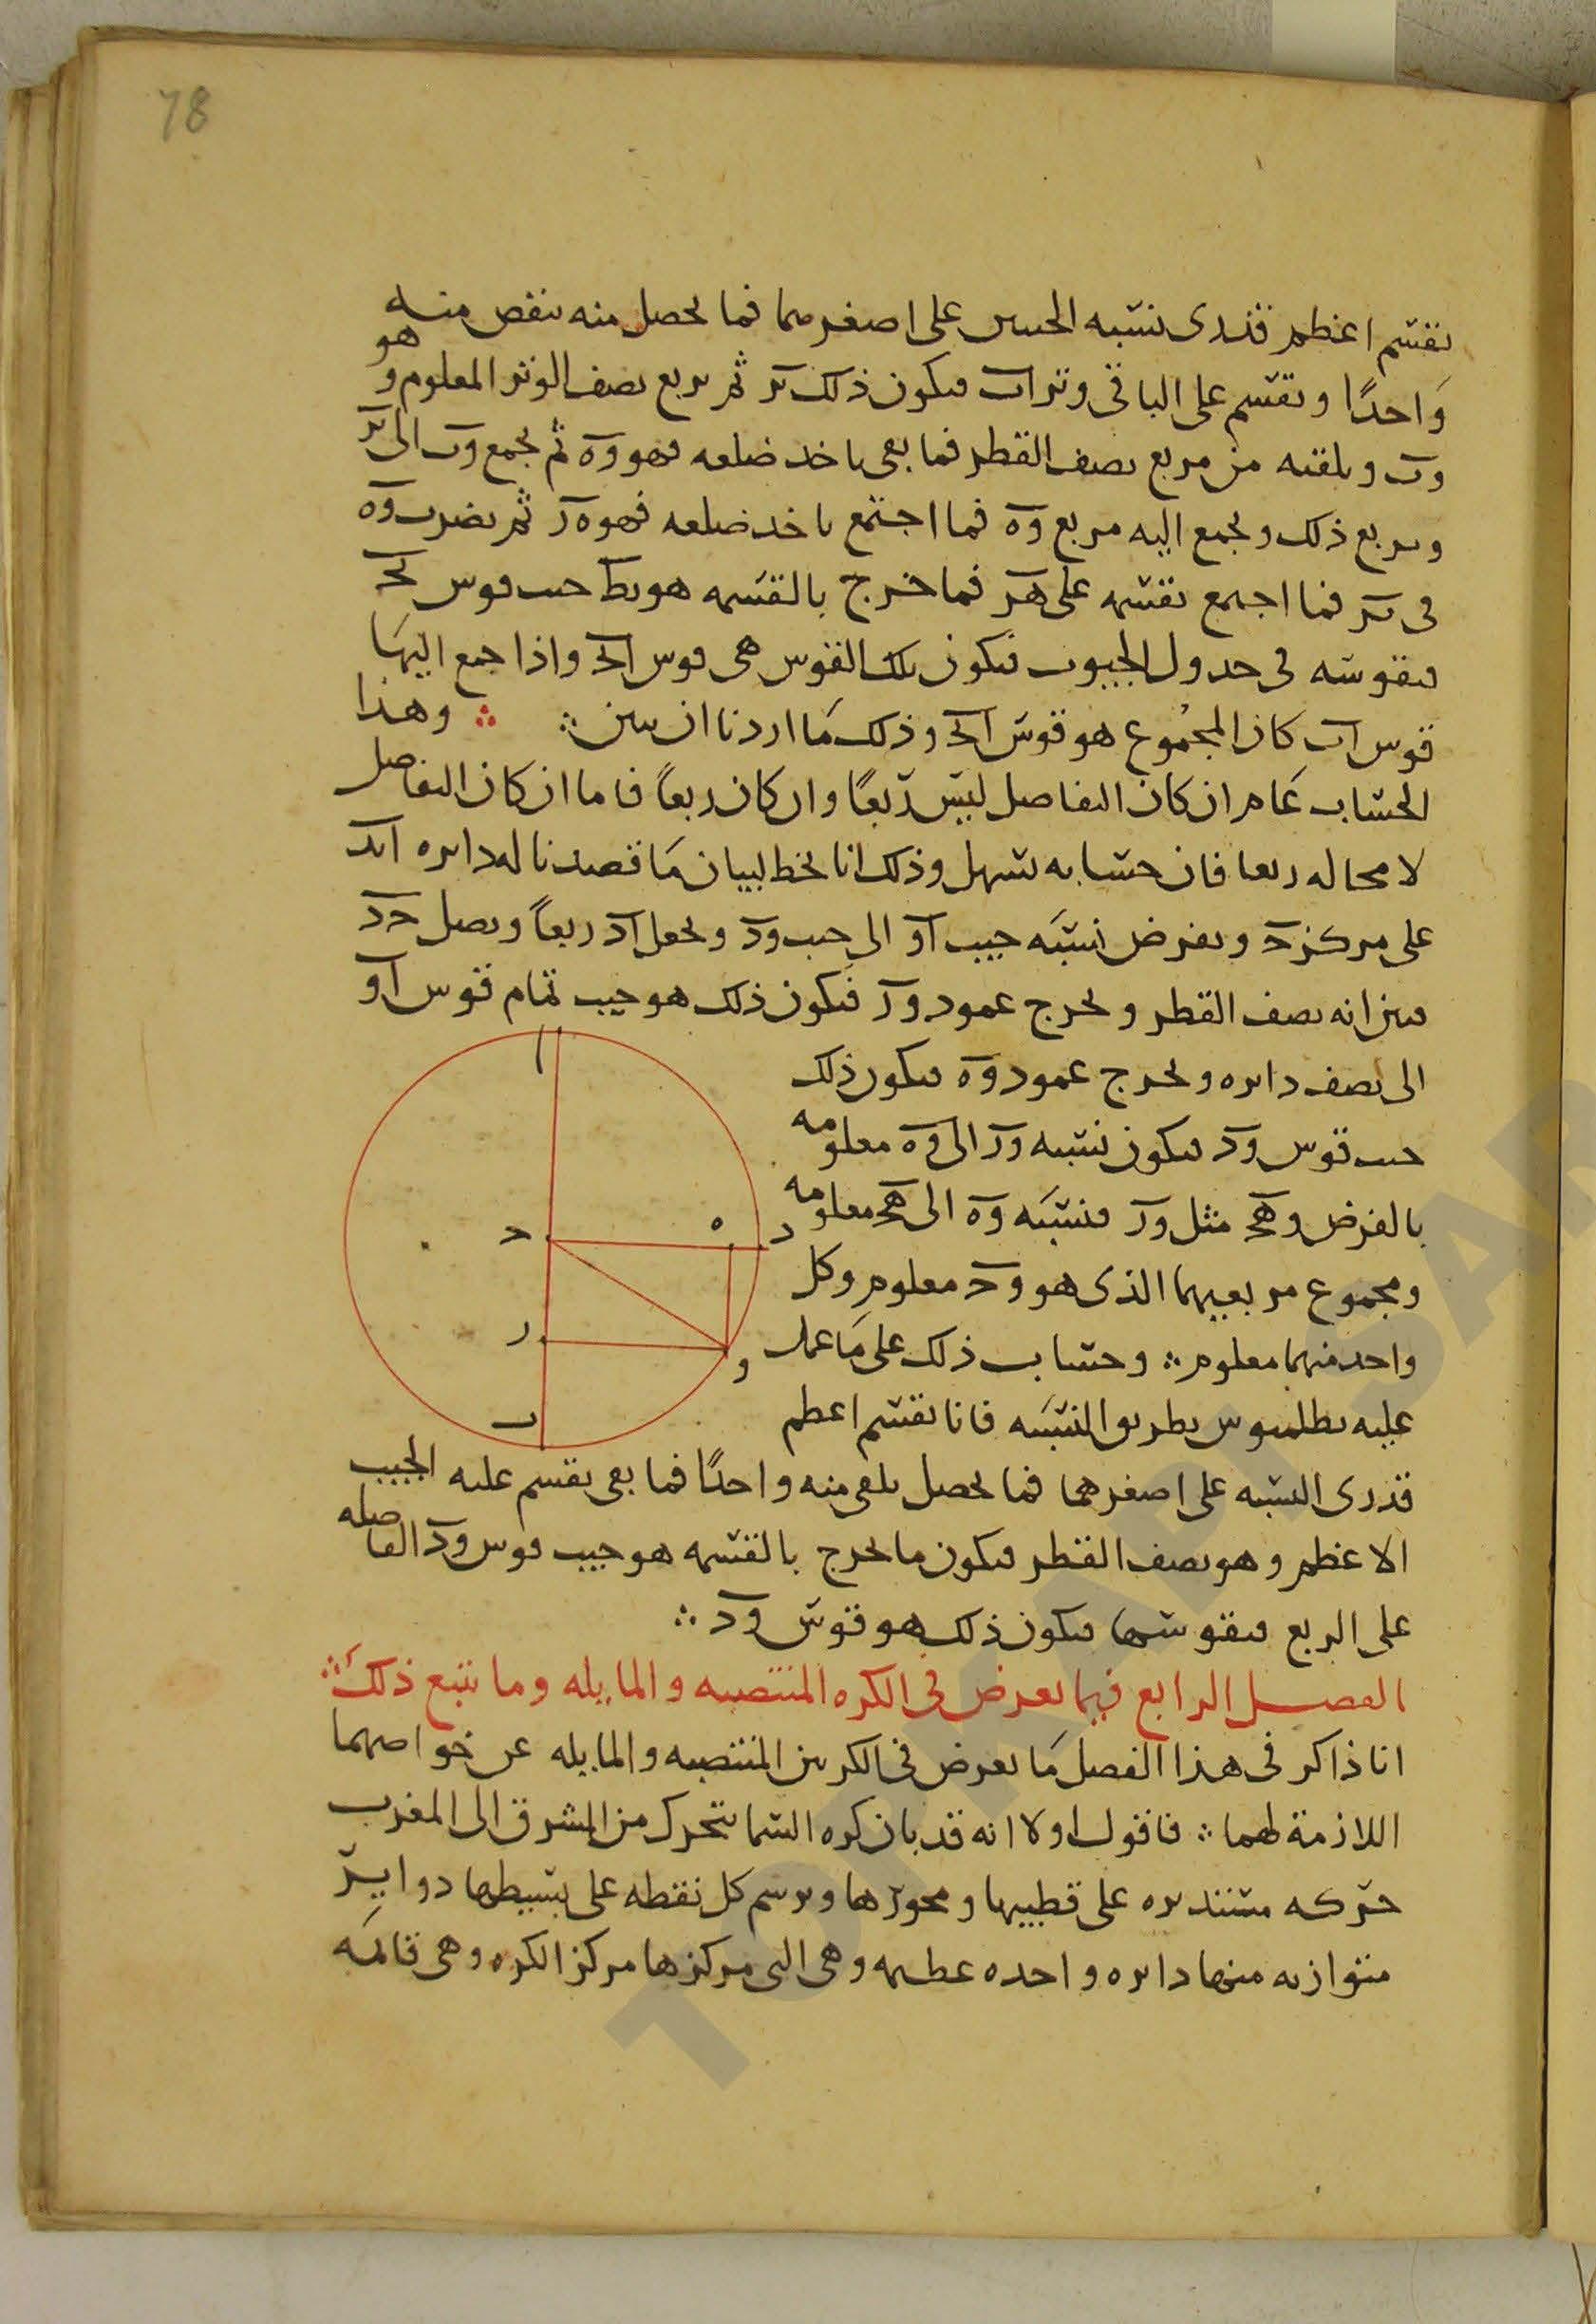 78
نقسم اعظم قدرى نسبه الجيبين على اصغرهما فما يحصل منه ننقص منه
واحدًا ونقسم على الباقى وتر اب فيكون ذلك بر ثم نربع نصف الوتر المعلوم وهو
وب ونلقيه من مربع نصف القطر فما بقى ناخد ضلعه فهو وه ثم نجمع وب الى بر
ونربع ذلك ونجمع اليه مربع وه فما اجتمع ناخد ضلعه فهو ه ر ثم نضرب وه
فى بر فما اجتمع نقسمه على هر فما خرج بالقسمه هو بط جيب قوس
فنقوسه فى جدول الجيوب فتكون تلك القوس هى قوس واذا جمع اليها
قوس اب كان المجموع هو قوس وذلك ما اردنا ان نبين ؞ ؞ وهذا
الحساب عام ان كان التفاصل ليس ربعًا وان كان ربعًا فاما ان كان التفاصل
لا محاله ربعا فان حسابه يسهل وذلك انا نخط لبيان ما قصدنا له دايره ابد
على مركز ح ونفرض نسبه جيب او الى جيب ود ونجعل اد ربعًا ونصل حد
فبين انه نصف القطر ونخرج عمود ور فيكون ذلك هو جيب تمام قوس او
الى نصف دايره ونخرج عمود وه فيكون ذلك
جيب قوس ود فيكون نسبه ور الى وه معلومه
بالفرض وهح مثل ور فنسبه وه الى هح معلومه
ومجموع مربعيهما الذى هو وح معلوم وكل
واحد منهما معلوم ؞ وحساب ذلك على ما عمل
عليه بطلميوس بطريق النسبه فانا نقسم اعظم
قدرى النسبه على اصغرهما فما يحصل نلقى منه واحدًا فما بقى نقسم عليه الجيب
الاعظم وهو نصف القطر فيكون ما يخرج بالقسمه هو جيب قوس ود الفاصله
على الربع فنقوسها فيكون ذلك هو قوس ود ؞
الفصل الرابع فيما يعرض فى الكره المنتصبه والمايله وما يتبع ذلك ؞
انا ذاكر فى هذا الفصل ما يعرض فى الكرتين المنتصبه والمايله عن خواصهما
اللازمة لهما ؞ فاقول اولا انه قد بان كره السما تتحرك من المشرق الى المغرب
حركه مستديره على قطبيها ومحورها ويرسم كل نقطه على بسيطها دواير
متوازيه منها دايره واحده عظيمه وهى التى مركزها مركز الكره وهى قايمه
ا
ح
ه
د
ر
و
ب